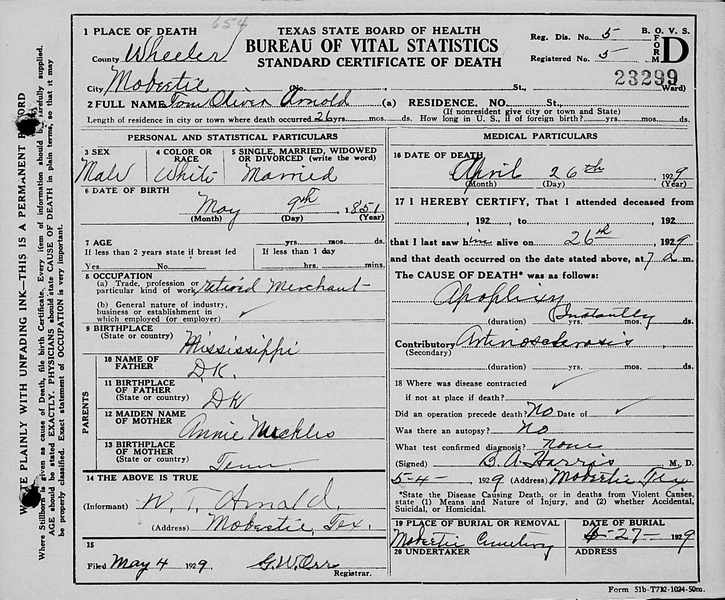 654
TEXAS STATE BOARD OF HEALTH
BUREAU OF VITAL STATISTICS
STANDARD CERTIFICATE OF DEATH
Reg. Dis. No. 5
Registered No. 5
B. O. V. S.
FORM D
23299
1 PLACE OF DEATH
County Wheeler
City Mobeetie No. St., Ward)
2 FULL NAME Tom Oliver Arnold (a) RESIDENCE. NO. St.,
(If nonresident give city or town and State)
Length of residence in city or town where death occurred 26 yrs. mos. ds. How long in U. S., if of foreign birth? yrs. mos. ds.
PERSONAL AND STATISTICAL PARTICULARS
3 SEX
Male
4 COLOR OR RACE
White
5 SINGLE, MARRIED, WIDOWED OR DIVORCED (write the word)
Married
6 DATE OF BIRTH
May 9th, 1851
(Month) (Day) (Year)
7 AGE yrs. mos. ds.
If less than 2 years state if breast fed If less than 1 day
Yes No hrs. mins.
8 OCCUPATION
(a) Trade, profession or
particular kind of work retired Merchant
(b) General nature of industry,
business or establishment in
which employed (or employer) ✓
9 BIRTHPLACE
(State or country) Mississippi
PARENTS
10 NAME OF
FATHER D.K.
11 BIRTHPLACE
OF FATHER
(State or country) DK
12 MAIDEN NAME
OF MOTHER Annie Mickles
13 BIRTHPLACE
OF MOTHER
(State or country) Tenn
14 THE ABOVE IS TRUE
(Informant) W. T. Arnold,
(Address) Mobeetie, Tex.
15
Filed May 4 1929 G. W. Orr
Registrar.
MEDICAL PARTICULARS
16 DATE OF DEATH
April 26th, 1929
(Month) (Day) (Year)
17 I HEREBY CERTIFY, That I attended deceased from
, 192 to , 192
that I last saw him alive on 26th, 1929
and that death occurred on the date stated above, at 7 a m.
The CAUSE OF DEATH* was as follows:
Apoplixy
Instantly
(duration) yrs. mos. ds.
Contributory
(Secondary)
(duration) yrs. mos. ds.
18 Where was disease contracted
if not at place of death? ✓
Did an operation precede death? No Date of ✓
Was there an autopsy? No
What test confirmed diagnosis? none
(Signed) B. A. Harris M. D.
5-4-, 1929 (Address) Mobeetie Tex
*State the Disease Causing Death, or in deaths from Violent Causes,
state (1) Means and Nature of Injury, and (2) whether Accidental,
Suicidal, or Homicidal.
19 PLACE OF BURIAL OR REMOVAL
Mobeetie Cemetery
DATE OF BURIAL
27- 1929
20 UNDERTAKER
ADDRESS
Form 51b-T712-1024-50m.
WRITE PLAINLY WITH UNFADING INK—THIS IS A PERMANENT RECORD
Where Stillborn is given as cause of Death, file birth Certificate. Every item of information should be carefully supplied.
AGE should be stated EXACTLY. PHYSICIANS should state CAUSE OF DEATH in plain terms, so that it may
be properly classified. Exact statement of OCCUPATION is very important.